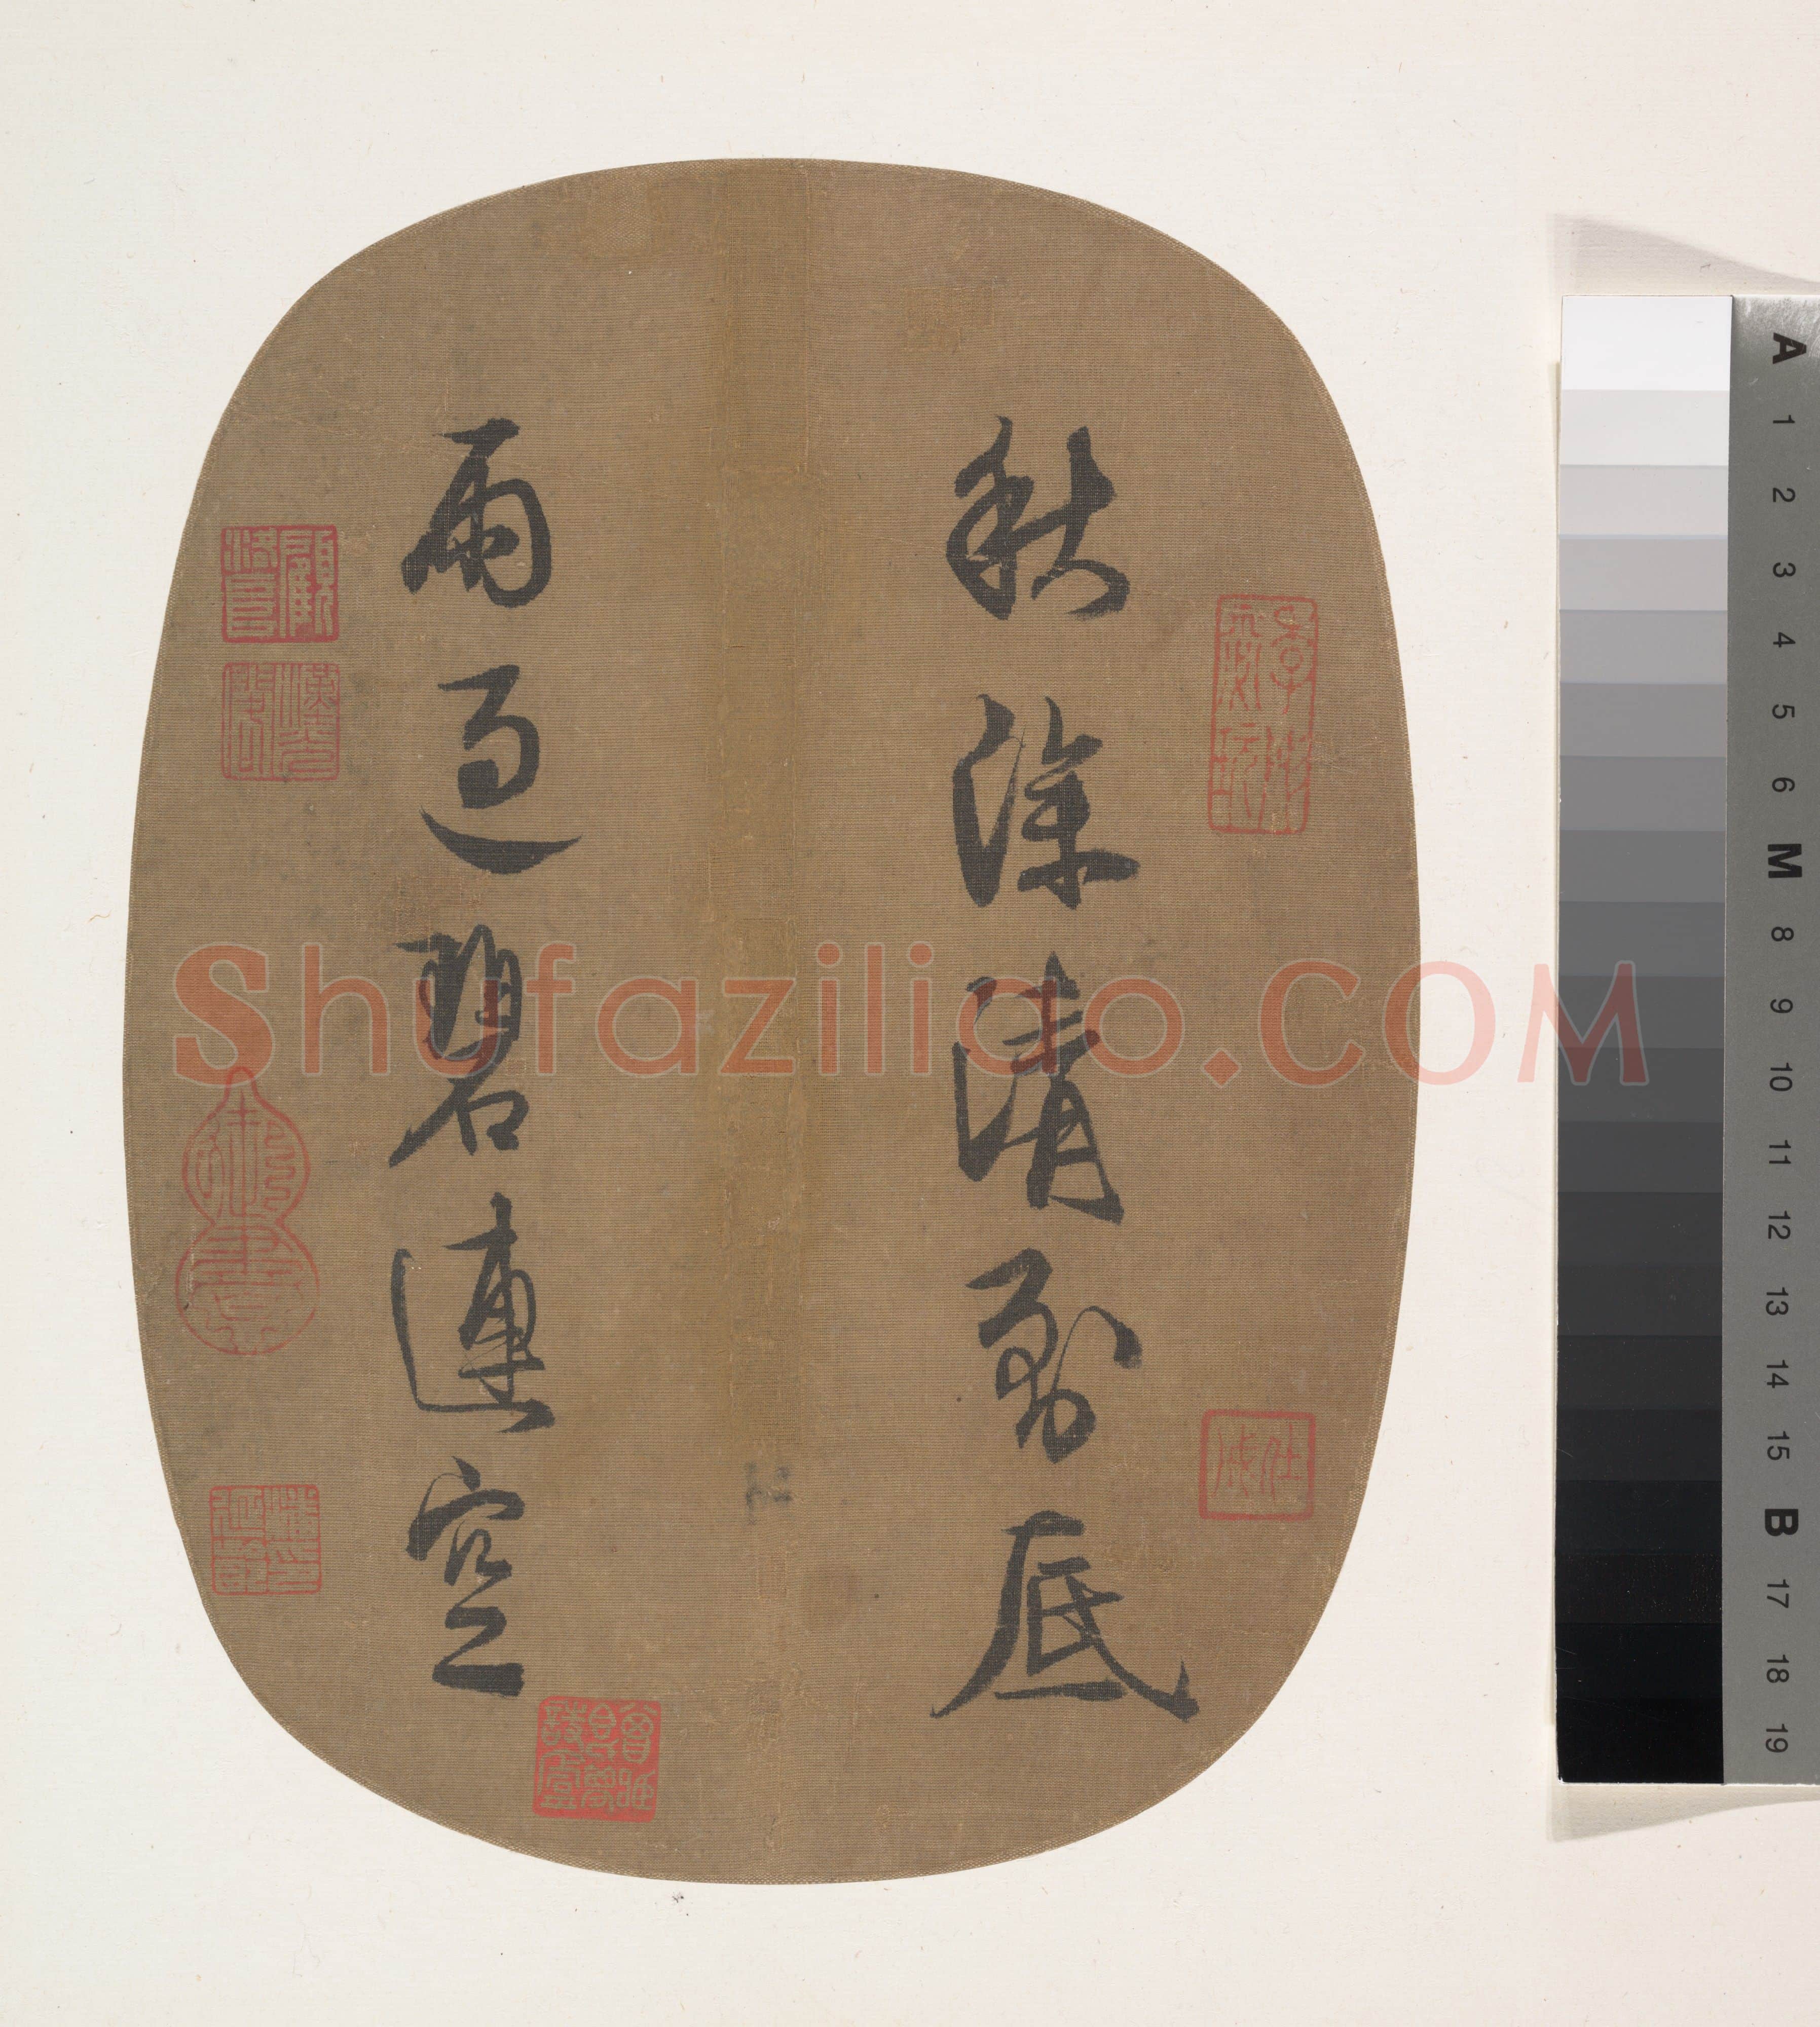 秋深清到底
雨過碧連空
顧洛阜
漢光閣
Shufaziliao.COM
A 1 2 3 4 5 6 M 8 9 10 11 12 13 14 15 B 17 18 19